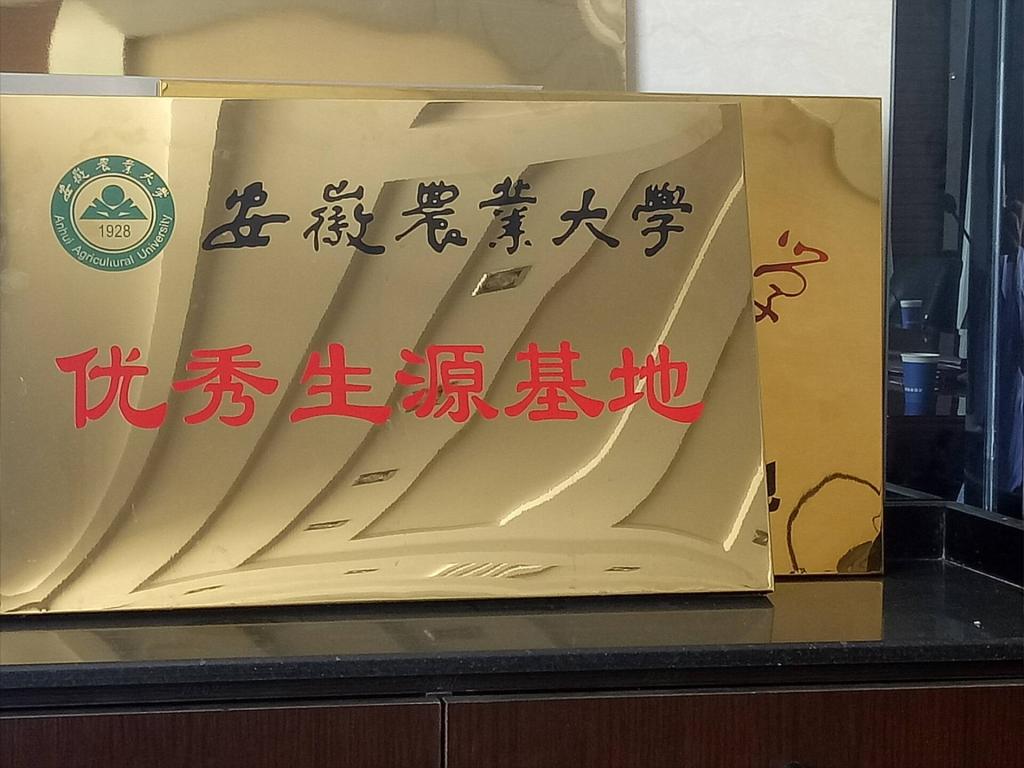 安徽農業大學
1928
Anhui Agricultural University
安徽農業大學
优秀生源基地